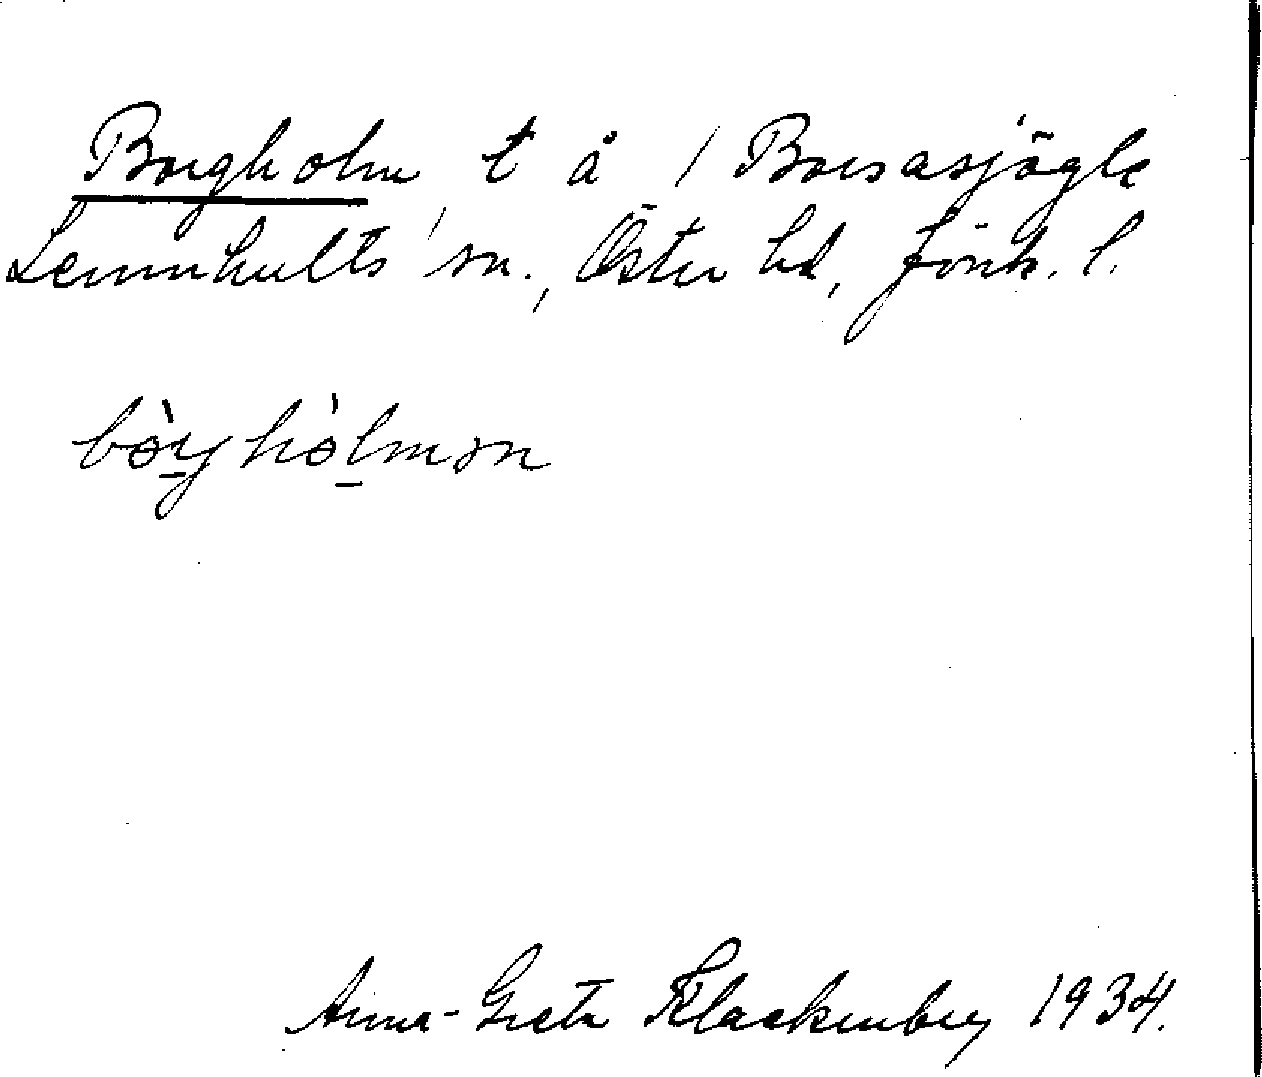 Borgholm, t å / Boasasjögle
Lemnhults sn., Östra hd, Jönk. l.
bòrghòlmən
Anna-Greta Klackenberg 1934.